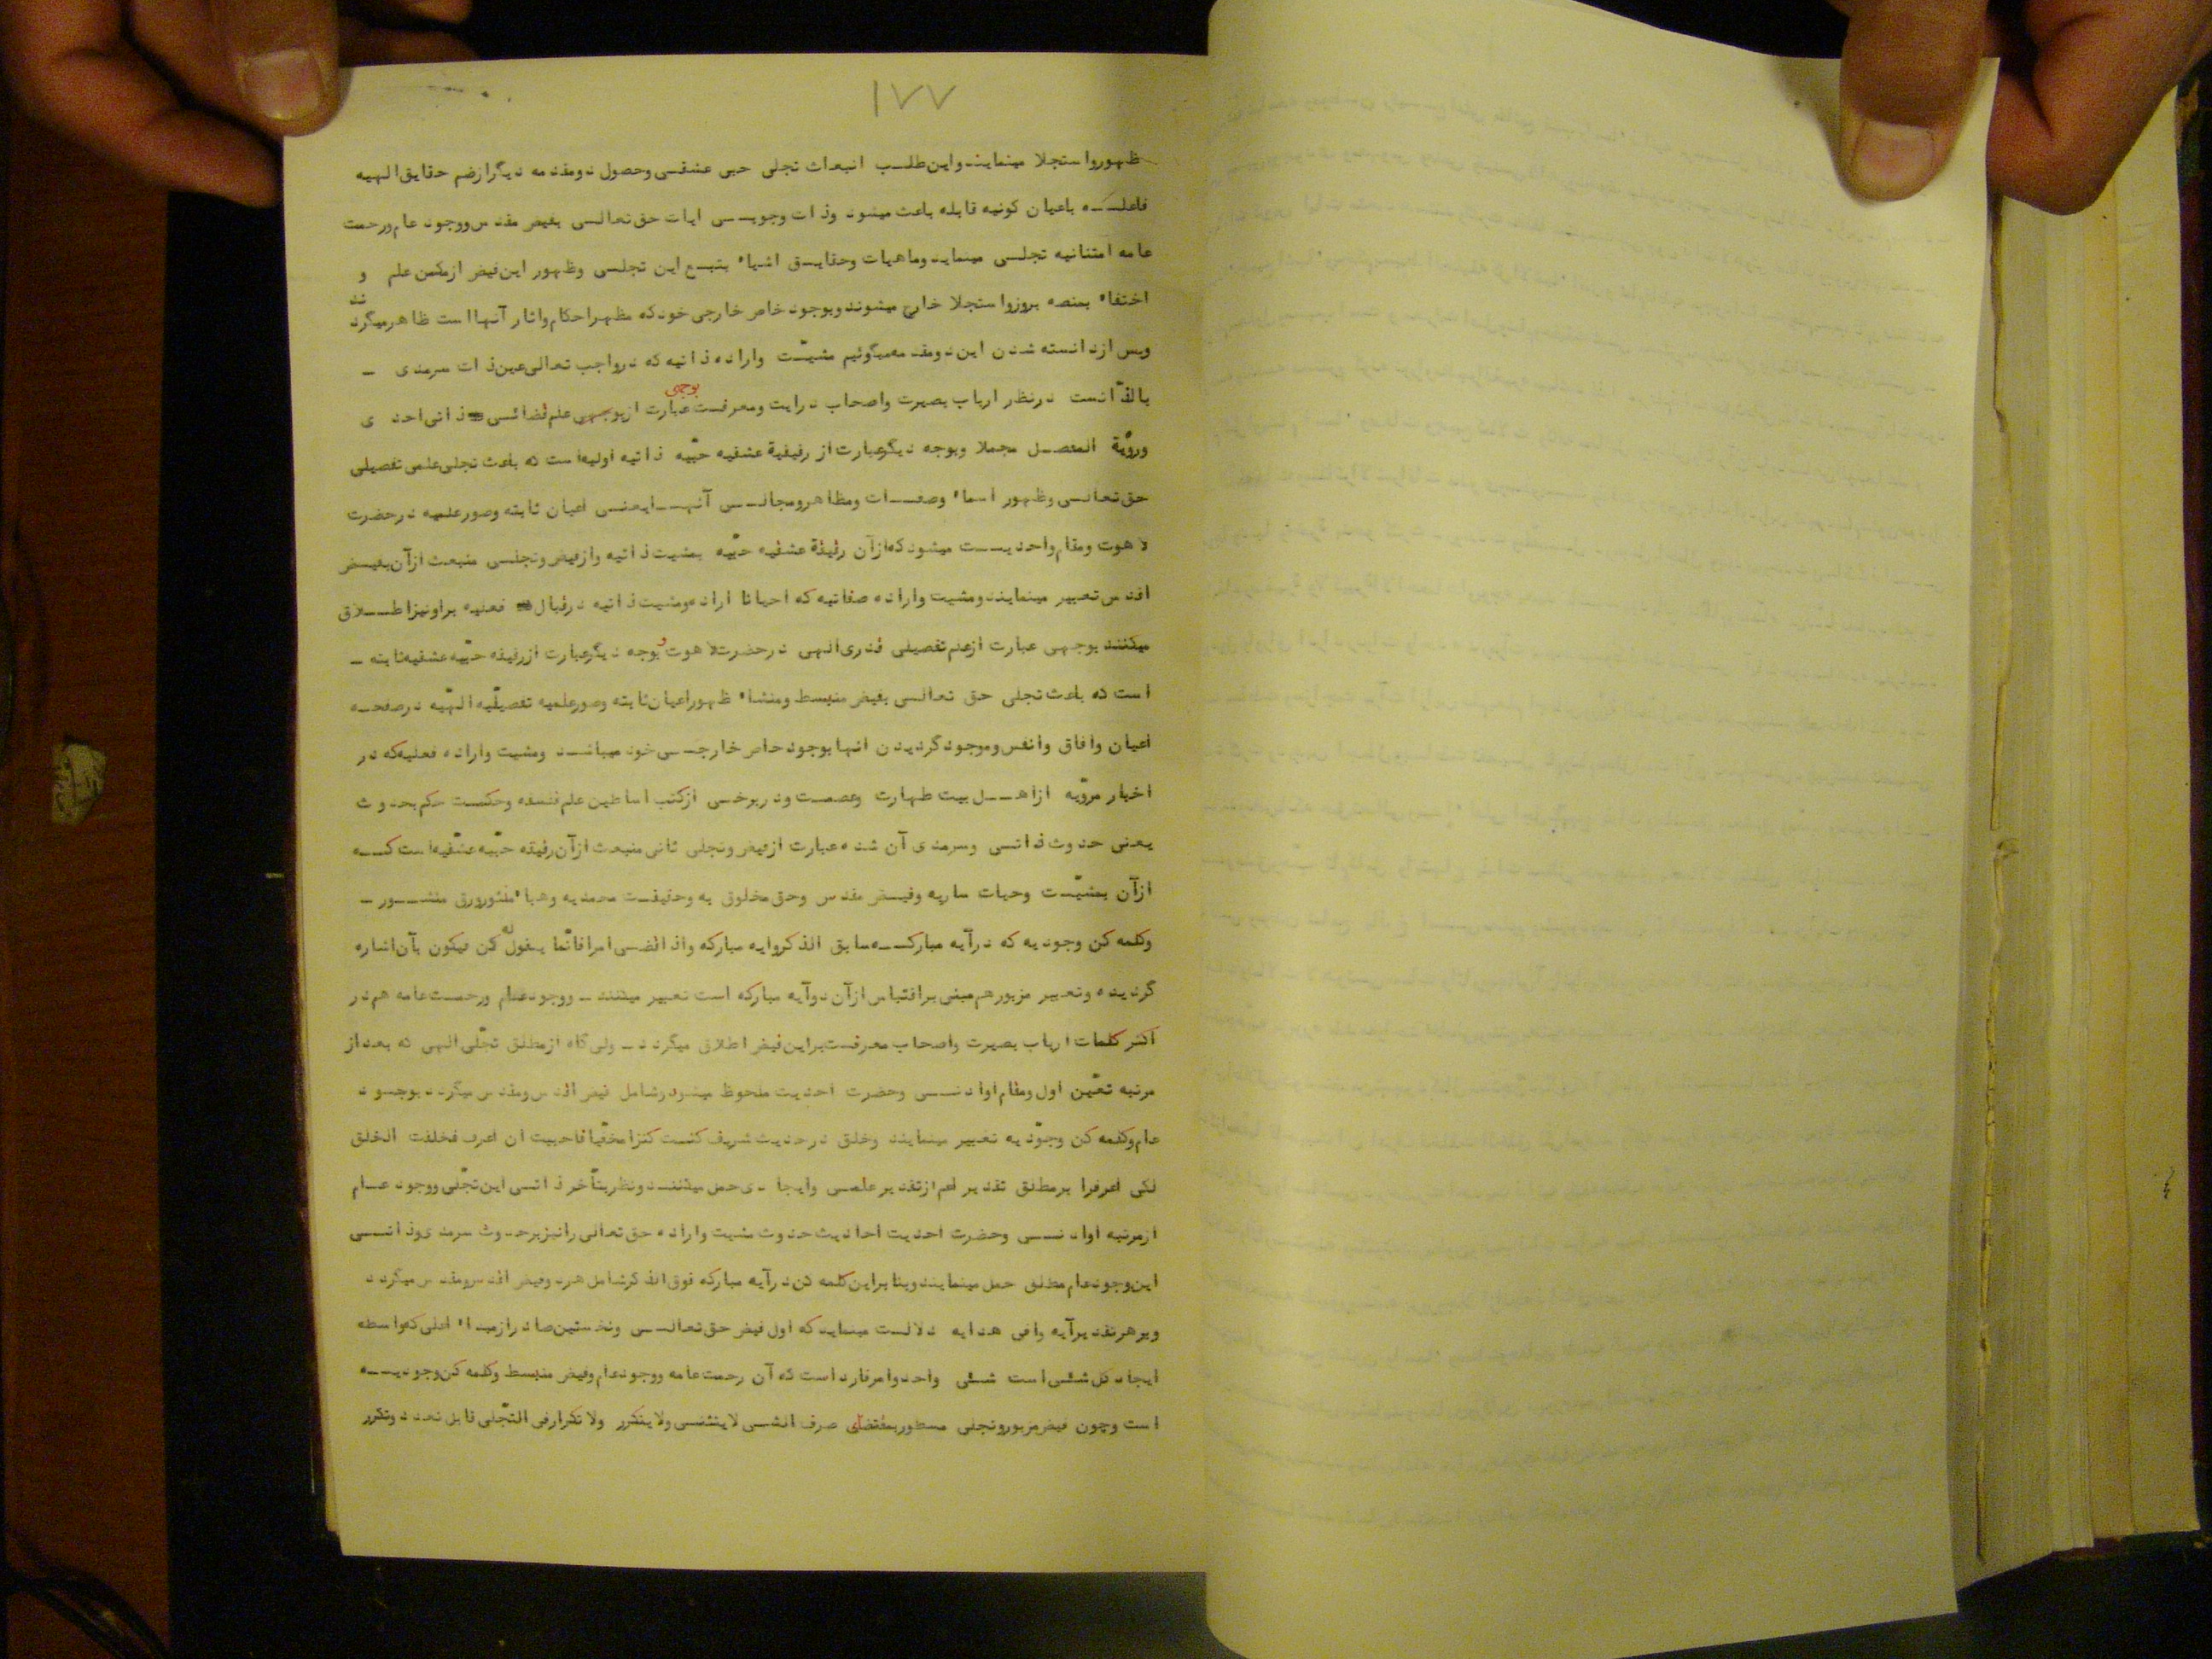 ۱۷۷
ظهور و استجلا مینمایند و این طلب انبعاث تجلی حبی عشقی و حصول دو مقدمه دیگر از ضم حقایق الهیه
فاعله باعیان کونیه قابله باعث میشود و ذات وجوبی ایات حق تعالی بفیض مقدس و وجود عام و رحمت
عامه امتنانیه تجلی مینماید و ماهیات و حقایق اشیاء بتبع این تجلی و ظهور این فیض از مکمن علم و
اختفاء بمنصه بروز و استجلا خارج میشوند و بوجود خاص خارجی خود که مظهر احکام و اثار آنها است ظاهر میگردند
و پس از دانسته شدن این دو مقدمه میگوئیم مشیّت و اراده ذاتیه که در واجب تعالی عین ذات سرمدی -
بالذّاتست در نظر ارباب بصیرت و اصحاب درایت و معرفت بوجهی عبارت از علم قضائی ذاتی احدی
و رؤیة المفصل مجملا و بوجه دیگر عبارت از رقیقة عشقیه حبّیه ذاتیه اولیه است که باعث تجلی علمی تفصیلی
حق تعالی و ظهور اسماء و صفات و مظاهر و مجالی آنها یعنی اعیان ثابته و صور علمیه در حضرت
لاهوت و مقام واحدیت میشود که از آن رقیقة عشقیه حبّیه بمشیت ذاتیه و از فیض و تجلی منبعث از آن بفیض
اقدس تعبیر مینمایند و مشیت و اراده صفاتیه که احیانا اراده و مشیت ذاتیه در قبال فعلیه بر او نیز اطلاق
میکنند بوجهی عبارت از علم تفصیلی قدری الهی در حضرت لاهوت و بوجه دیگر عبارت از رقیقه حبّیه عشقیه ثابته -
است که باعث تجلی حق تعالی بفیض منبسط و منشاء ظهور اعیان ثابته و صور علمیه تفصیلیّه الهیّه در صفحه
اعیان و افاق و انفس و موجود گردیدن انها بوجود خاص خارجی خود میباشد و مشیت و اراده فعلیه که در
اخبار مرویّه از اهل بیت طهارت و عصمت و در برخی از کتب اساطین علم فلسفه و حکمت حکم بحدوث
یعنی حدوث ذاتی و سرمدی آن شده عبارت از فیض و تجلی ثانی منبعث از آن رقیقه حبّیه عشقیّه است که
از آن بمشیّت و حیات ساریه و فیض مقدس و حق مخلوق به و حقیقت محمدیه و هباء منثور و رق منشور -
و کلمه کن وجودیه که در آیه مبارکه سابق الذکر و ایه مبارکه و اذا قضی امرا فانّما یقول له کن فیکون بآن اشاره
گردیده و تعبیر مزبور هم مبنی بر اقتباس از آن دو آیه مبارکه است تعبیر میکنند - و وجود عام و رحمت عامه هم در
اکثر کلمات ارباب بصیرت و اصحاب معرفت بر این فیض اطلاق میگردد - ولی گاه از مطلق تجلّی الهی که بعد از
مرتبه تعیّن اول و مقام او ادنی و حضرت احدیت ملحوظ میشود و شامل فیض اقدس و مقدس میگردد بوجود
عام و کلمه کن وجوّدیه تعبیر مینمایند و خلق در حدیث شریف کنت کنزا مخفّیا فاحببت ان اعرف فخلقت الخلق
لکی اعرف را بر مطلق تقدیر اعم از تقدیر علمی و ایجادی حمل میکنند و نظر بتأخّر ذاتی این تجلّی و وجود عام
از مرتبه او ادنی و حضرت احدیت احادیث حدوث مشیت و اراده حق تعالی را نیز بر حدوث سرمدی و ذاتی
این وجود عام مطلق حمل مینمایند و بنا بر این کلمه کن در آیه مبارکه فوق الذکر شامل هر دو فیض اقدس و مقدس میگردد
و بر هر تقدیر آیه وافی هدایه دلالت مینماید که اول فیض حق تعالی و نخستین صادر از مبداء اعلی که واسطه
ایجاد کل شئی است شئی واحد و امر فارد است که آن رحمت عامه و وجود عام و فیض منبسط و کلمه کن وجودیه
است و چون فیض مزبور و تجلی مسطور بمقتضای صرف الشی لا یتثنی و لا یتکرر و لا تکرار فی التجّلی قابل تعدد و تکرر